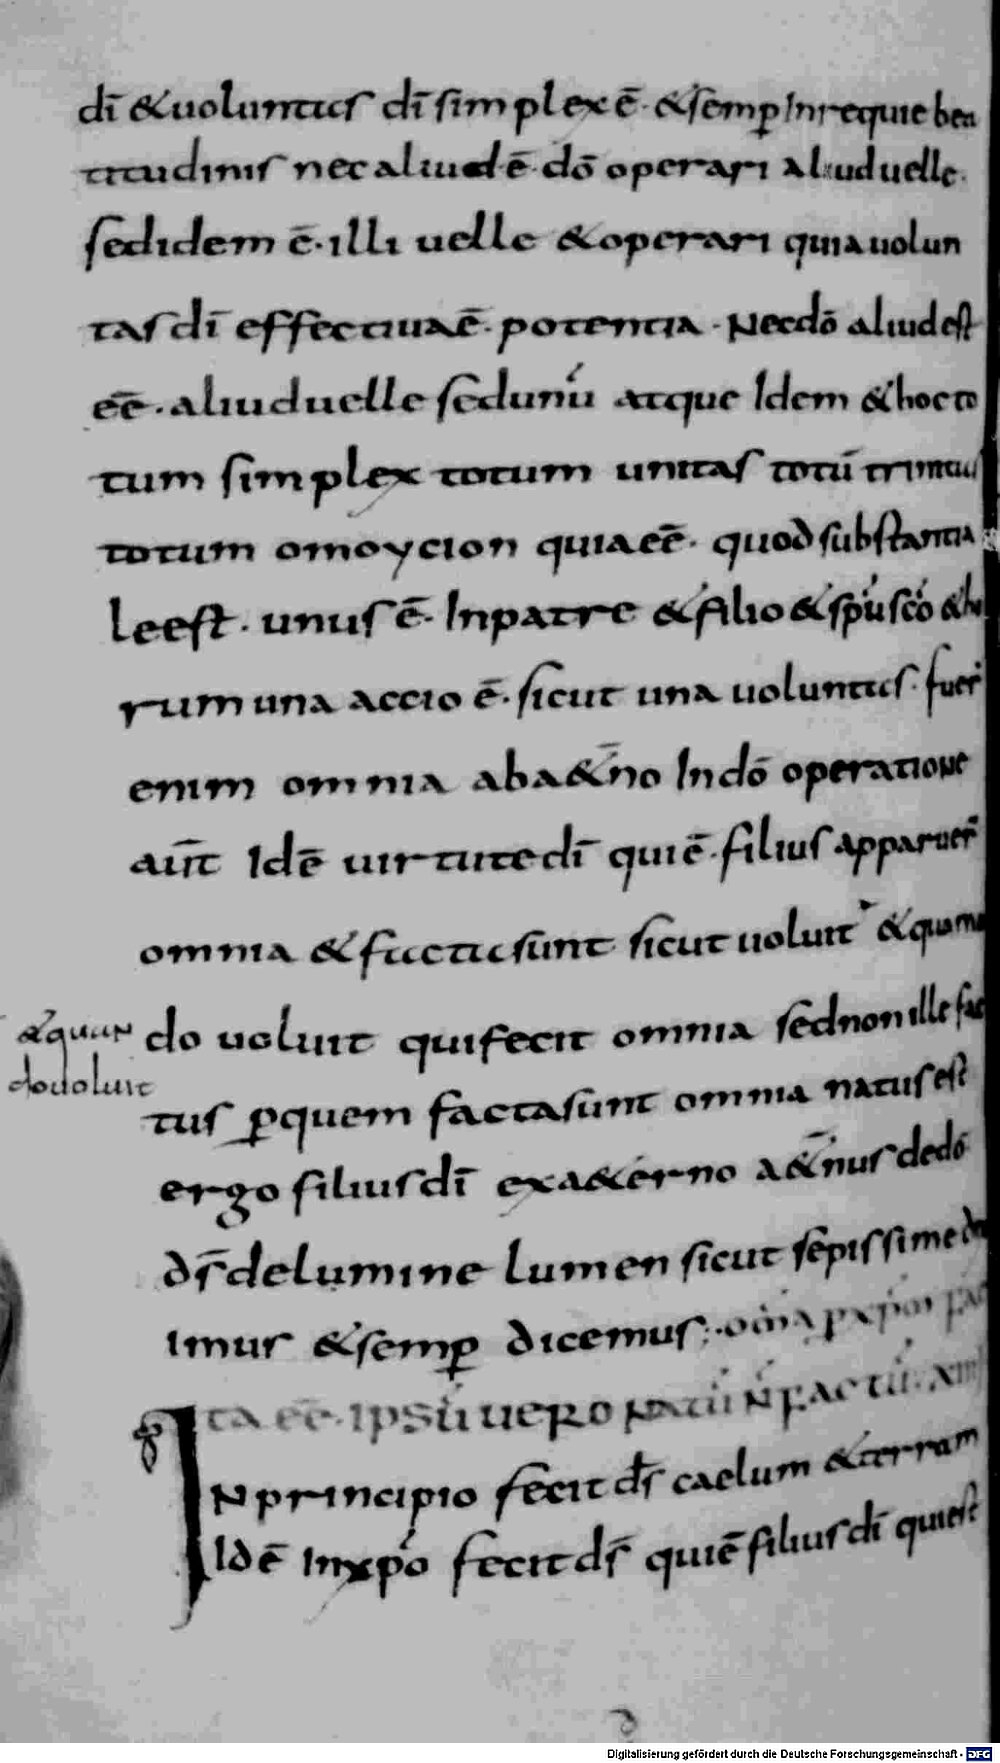 dī & uoluntas dī simplex ē · & semꝑ In requie bea
titudinis nec aliud·ē· dō operari aliud uelle·
sed idem ē· illi uelle & operari quia uolun
tas dī effectiua ē· potentia · Nec dō aliud est
eē · aliud uelle sed unū atque Idem & hoc to
tum simplex totum unitas totū trinitas
totum omoycion quia eē · quod substantia
le est · unus ē· In patre & filio & spū scō &
rum una accio ē· sicut una uoluntas · fuer̄
enim omnia ab a&̄no In dō operatione
aūt Idē uirtute dī qui ē· filius apparuer̄
omnia & facta sunt sicut uoluit & quam
& quan
do uoluit
do uoluit qui fecit omnia sed non ille fac
tus ꝑ quem facta sunt omnia natus est
ergo filius dī ex a&erno a&̄nus de dō
ds̄ de lumine lumen sicut sepissime
imus & semꝑ dicemus; · om̄a p xp̄m fac
ta eē · ipsū uero natū n̄ factū ·
IN principio fecit ds̄ caelum & terram
Id ē In xpō fecit ds̄ qui ē filius dī qui est
Digitalisierung gefördert durch die Deutsche Forschungsgemeinschaft - DFG